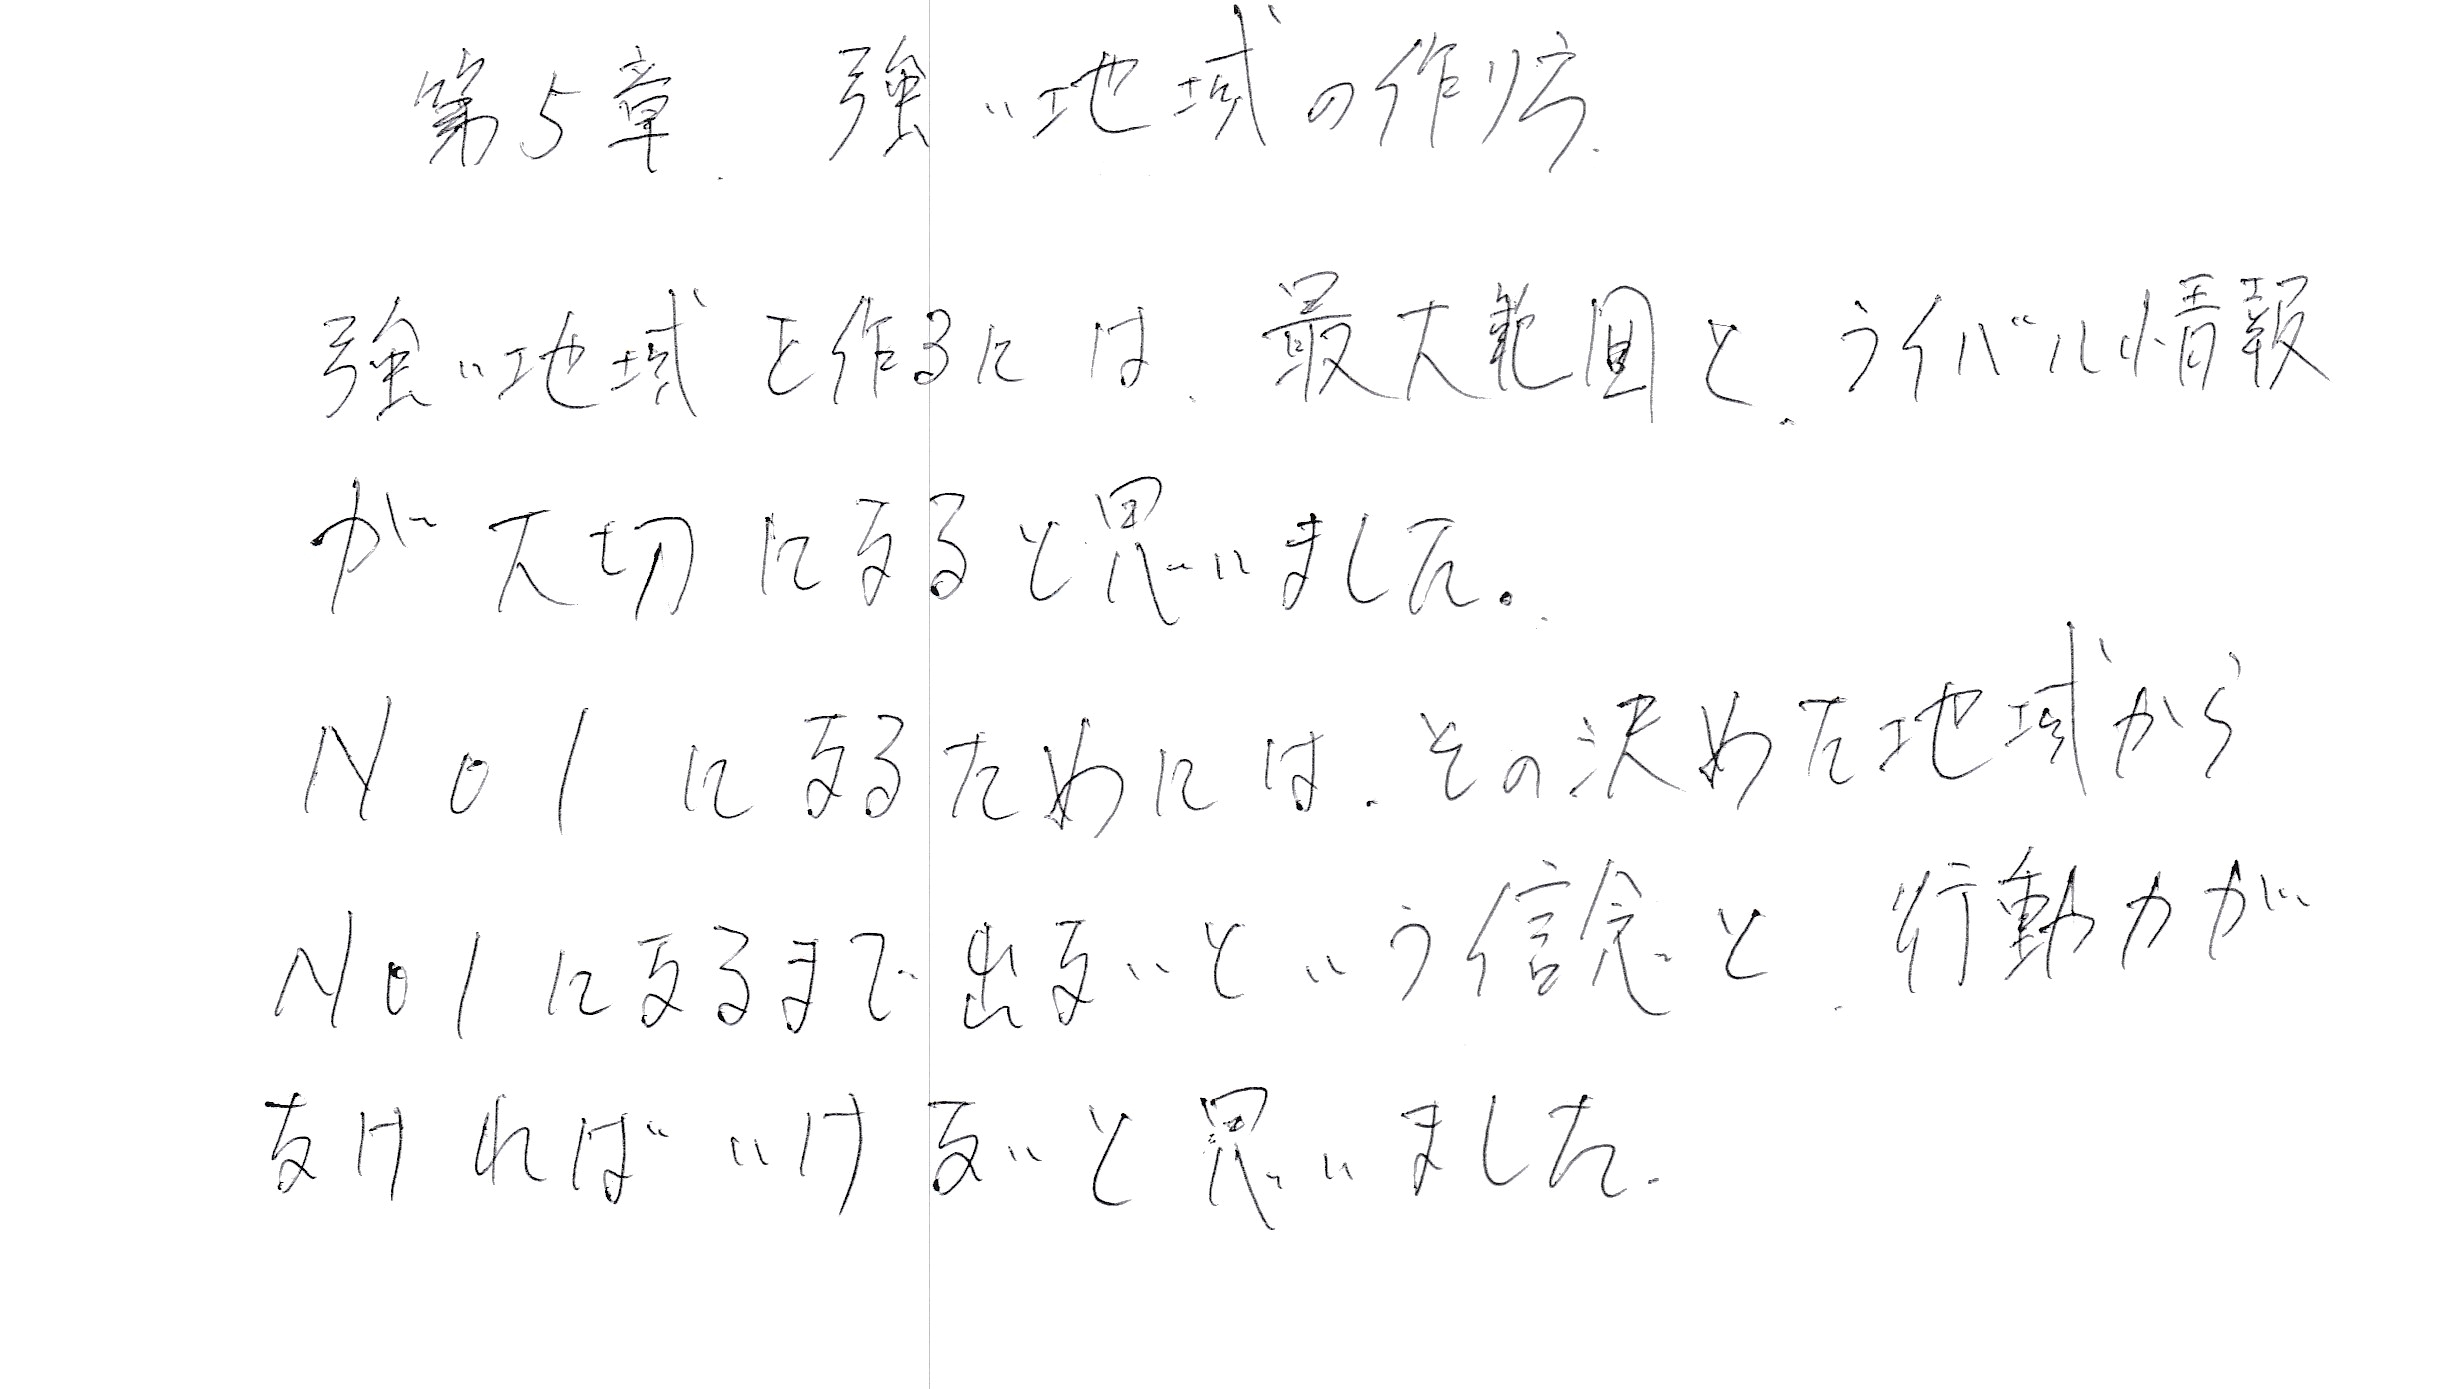 第5章、強い地域の作り方、
強い地域を作るには、最大範囲と、ライバル情報
が大切になると思いました。
No1になるためには、その決めた地域から
No1になるまで出ないという信念と、行動力が
なければいけないと思いました。